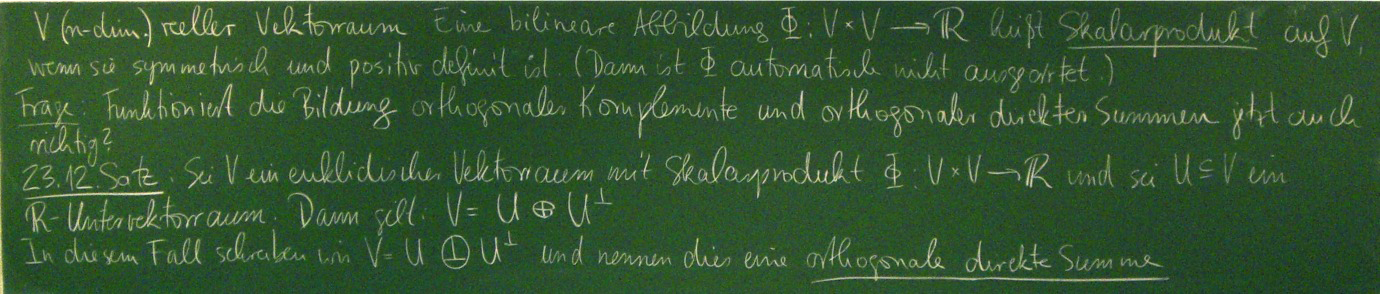 V (n-dim.) reeller Vektorraum Eine bilineare Abbildung Φ : V × V → ℝ heißt Skalarprodukt auf V,
wenn sie symmetrisch und positiv definit ist. (Dann ist Φ automatisch nicht ausgeartet.)
Frage: Funktioniert die Bildung orthogonaler Komplemente und orthogonaler direkter Summen jetzt auch
richtig?
23.12. Satz. Sei V ein euklidischer Vektorraum mit Skalarprodukt Φ : V × V → ℝ und sei U ⊆ V ein
ℝ-Untervektorraum. Dann gilt: V = U ⊕ U^⊥
In diesem Fall schreiben wir V = U Ⓣ U^⊥ und nennen dies eine orthogonale direkte Summe